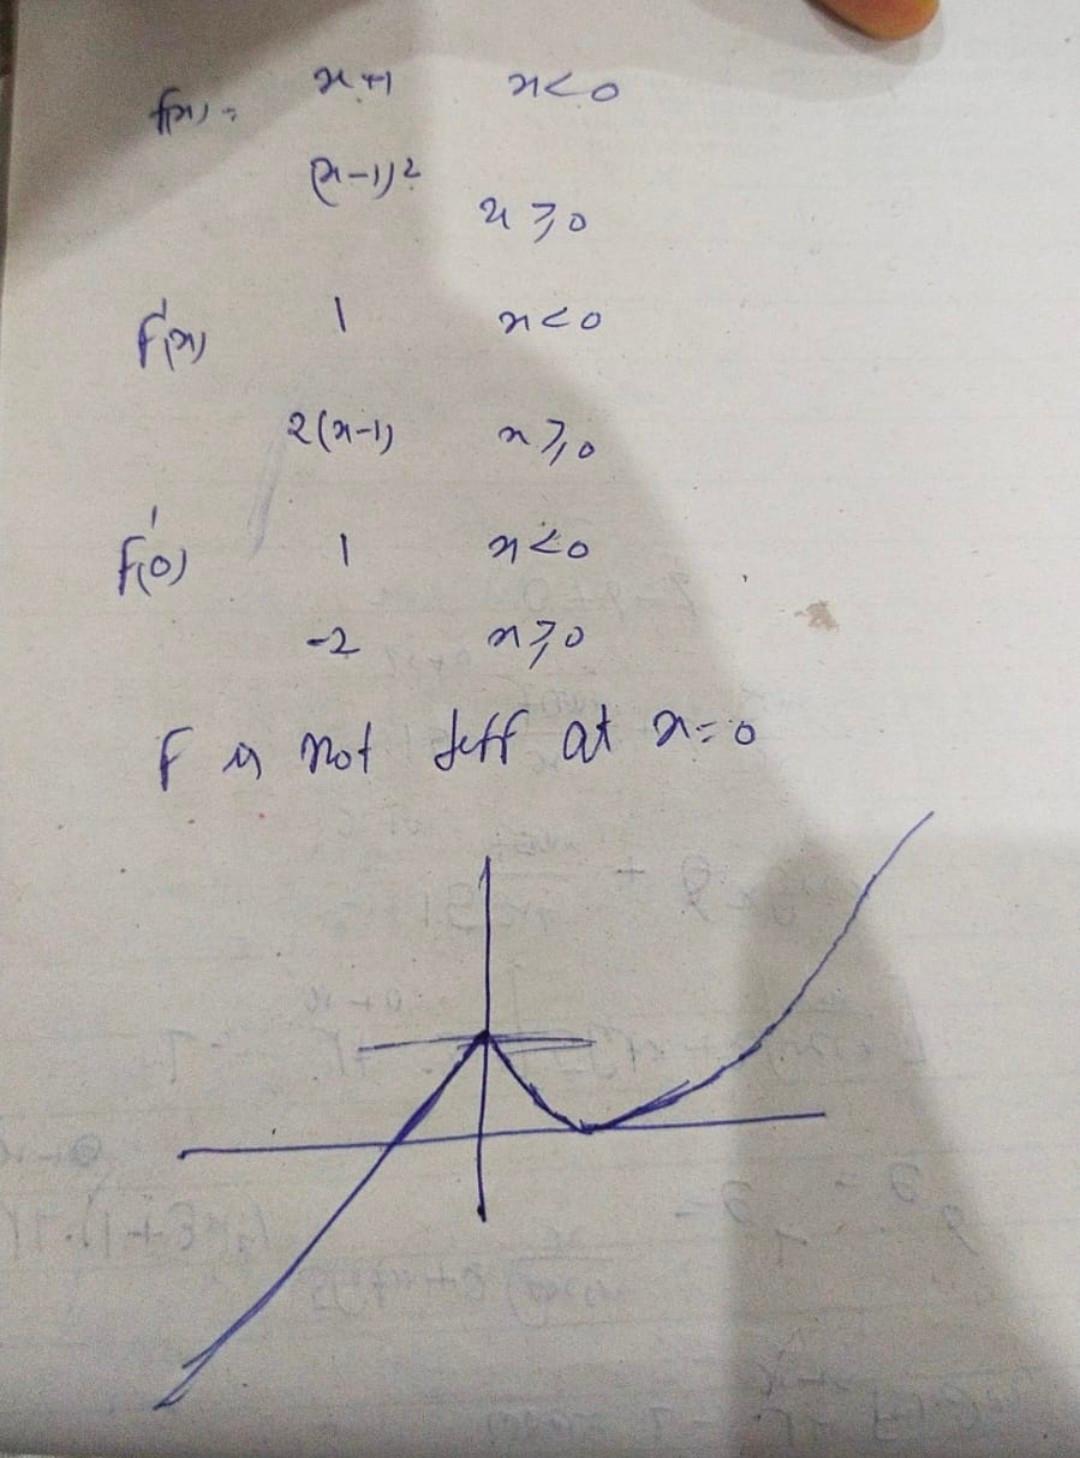 f(x) = x+1 x<0
(x-1)² x⩾0
f'(x) 1 x<0
2(x-1) x⩾0
f'(0) 1 x<0
-2 x⩾0
f is not diff at x=0